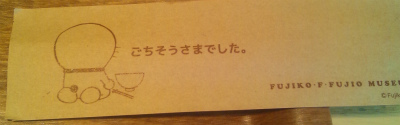 ごちそうさまでした。
FUJIKO・F・FUJIO MUSE
©Fujik